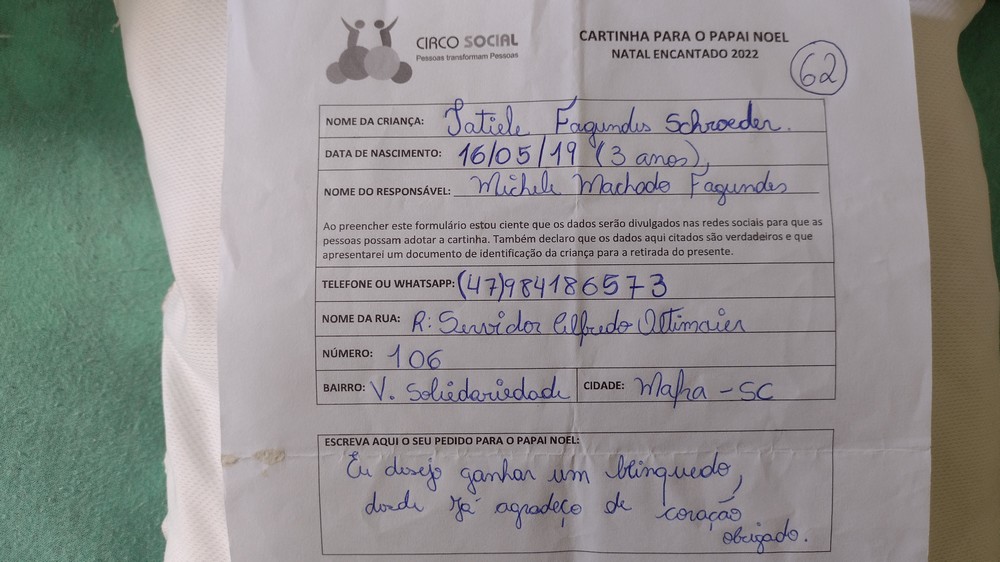 CIRCO SOCIAL
Pessoas transformam Pessoas
CARTINHA PARA O PAPAI NOEL
NATAL ENCANTADO 2022
62
NOME DA CRIANÇA: Tatiele Fagundes Schroeder.
DATA DE NASCIMENTO: 16/05/19 (3 anos),
NOME DO RESPONSÁVEL: Michele Machado Fagundes
Ao preencher este formulário estou ciente que os dados serão divulgados nas redes sociais para que as
pessoas possam adotar a cartinha. Também declaro que os dados aqui citados são verdadeiros e que
apresentarei um documento de identificação da criança para a retirada do presente.
TELEFONE OU WHATSAPP: (47)984186573
NOME DA RUA: R: Servidor Alfredo
NÚMERO: 106
BAIRRO: V. Soliedariedade CIDADE: Mafra - SC
ESCREVA AQUI O SEU PEDIDO PARA O PAPAI NOEL:
Eu desejo ganhar um brinquedo,
desde já agradeço de coração
obrigado.